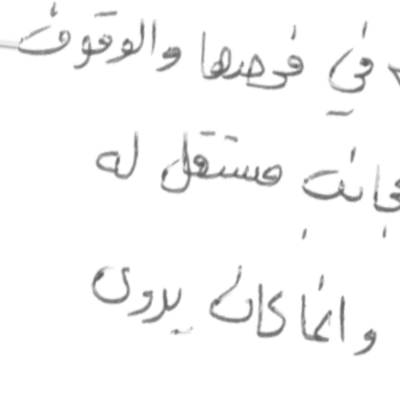 في فحصها والوقوف
جانب مستقل له
وانما كان يرون